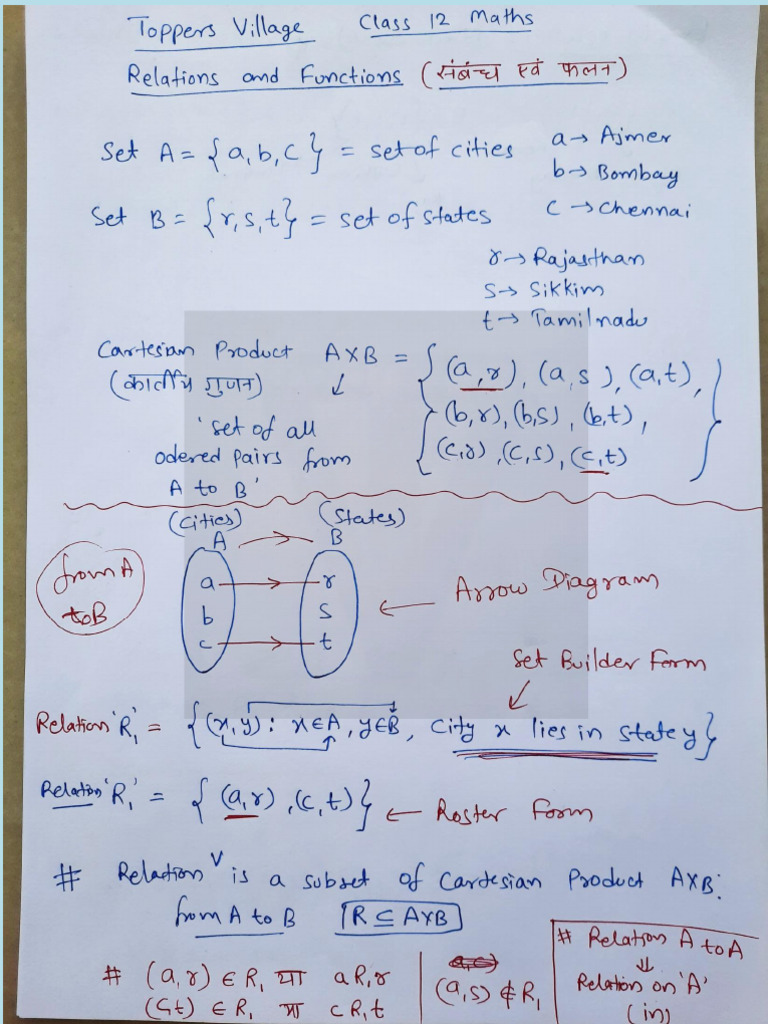 Toppers Village Class 12 Maths
Relations and Functions (संबंध एवं फलन)
Set A = {a, b, c} = set of cities
a → Ajmer
b → Bombay
c → Chennai
Set B = {r, s, t} = set of states
r → Rajasthan
s → Sikkim
t → Tamilnadu
Cartesian Product A×B = {(a, r), (a, s), (a, t),
(b, r), (b, s), (b, t),
(c, r), (c, s), (c, t)}
(कार्तीय गुणन) ↓
'set of all
odered pairs from
A to B'
(Cities) (States)
A → B
from A
to B
a → r
b s
c → t
← Arrow Diagram
Set Builder Form
Relation 'R₁' = {(x, y) : x ∈ A, y ∈ B, City x lies in state y}
Relation 'R₁' = {(a, r), (c, t)} ← Roster Form
# Relation ∨ is a subset of Cartesian Product A×B.
from A to B R ⊆ A×B
# (a, r) ∈ R₁ या a R₁ r
(c, t) ∈ R₁ या c R₁ t
(a, s) ∉ R₁
# Relation A to A
⇓
Relation on 'A'
(in)